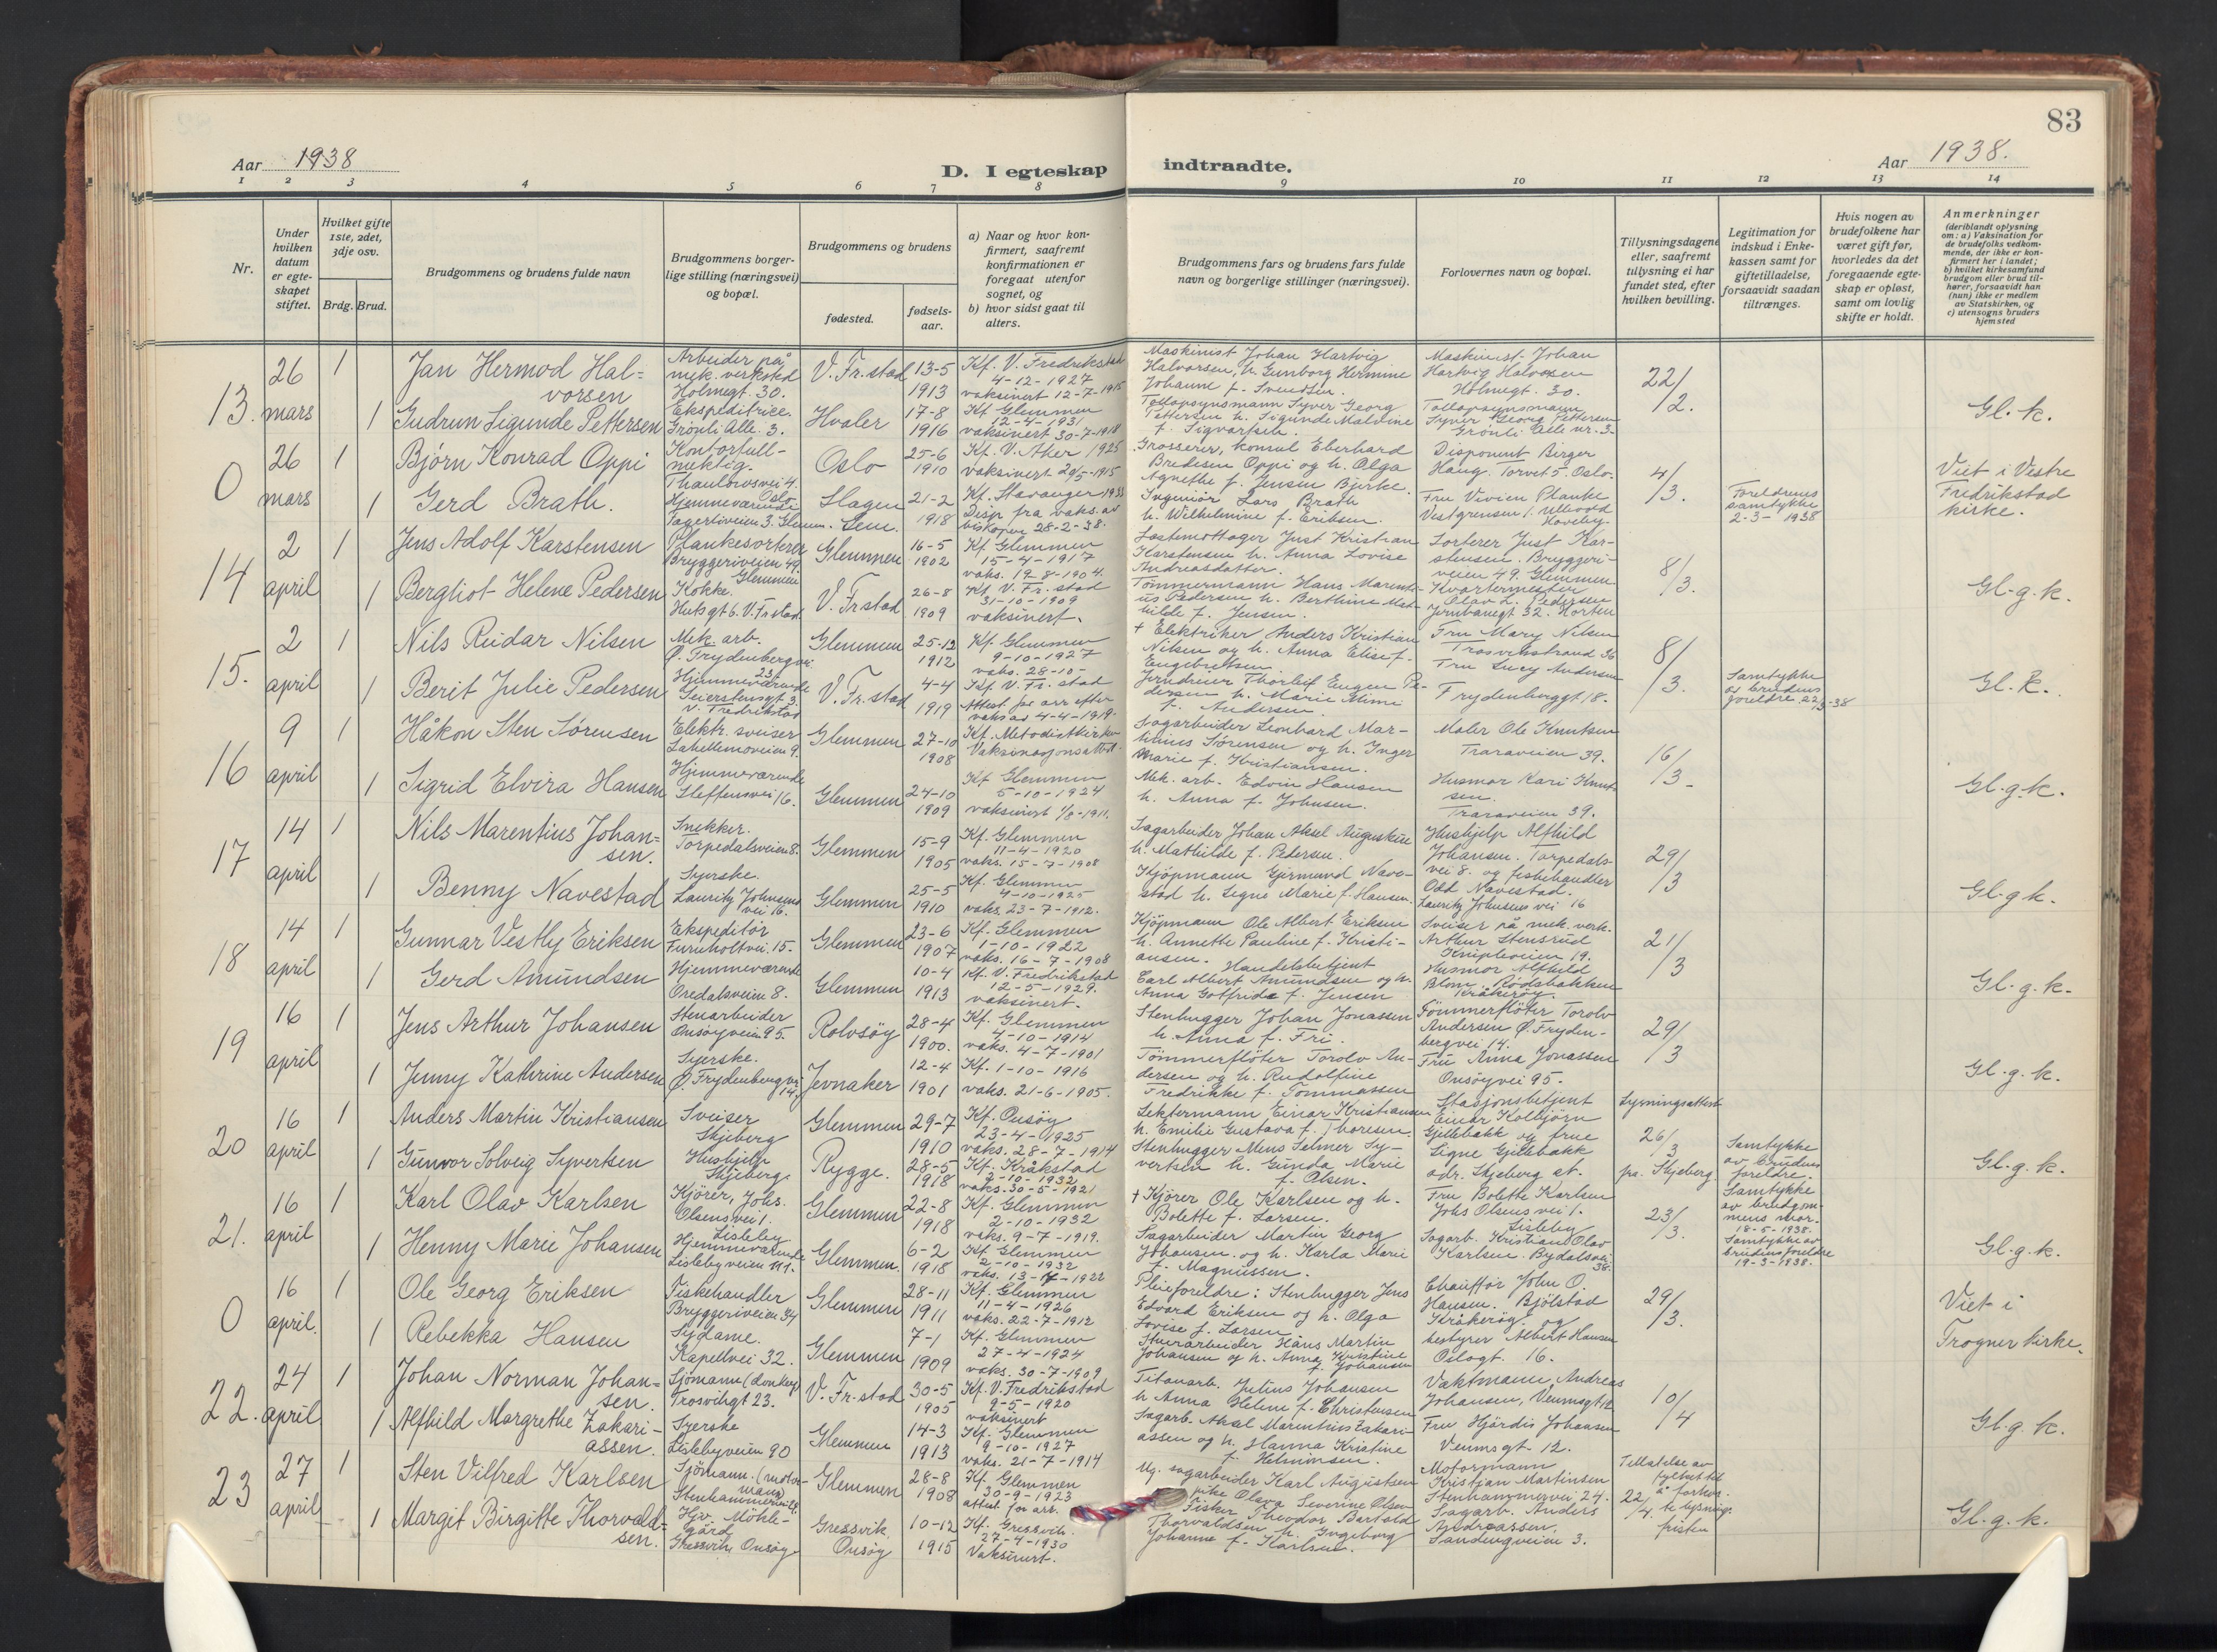 83
Aar 1938
D. I egteskap
indtraadte.
Aar 1938.
1 2 3 4 5 6 7 8 9 10 11 12 13 14
Nr.
Under hvilken datum er egte-skapet stiftet.
Hvilket gifte 1ste, 2det, 3dje osv.
Brdg. Brud.
Brudgommens og brudens fulde navn
Brudgommens borger-lige stilling (næringsvei) og bopæl.
Brudgommens og brudens
fødested.
fødsels-aar.
a) Naar og hvor kon-firmert, saafremt konfirmationen er foregaat utenfor sognet, og
b) hvor sidst gaat til alters.
Brudgommens fars og brudens fars fulde navn og borgerlige stillinger (næringsvei).
Forlovernes navn og bopæl.
Tillysningsdagene eller, saafremt tillysning ei har fundet sted, efter hvilken bevilling.
Legitimation for indskud i Enke-kassen samt for giftetilladelse, forsaavidt saadan tiltrænges.
Hvis nogen av brudefolkene har været gift før, hvorledes da det foregaaende egte-skap er opløst, samt om lovlig skifte er holdt.
Anmerkninger (deriblandt oplysning om: a) Vaksination for de brudefolks vedkom-mende, der ikke er kon-firmert her i landet; b) hvilket kirkesamfund brudgom eller brud til-hører, forsaavidt han (hun) ikke er medlem av Statskirken, og c) utensogns bruders hjemsted
13. 26 mars 1
Jan Hermod Hal=
vorsen
Arbeider på
mek. verksted
Holmegt. 30.
V. Fr.stad
13-5
1913
Kf. V. Fredrikstad
4-12-1927
vaksinert 12-7-1915
Maskinist Johan Hartvig
Halvorsen, h. Gunborg Hermine
Johanne f. Svendsen.
Maskinist Johan
Hartvig Halvorsen
Holmegt. 30.
22/2.
1 Gudrun Sigunde Pettersen
Ekspeditrice.
Grönli Alle. 3.
Hvaler
17-8
1916
Kf Glemmen
12-4-1931
vaksinert 30-7-1918
Tollopsynsmann Syver Georg
Pettersen h. Sigunde Malvine
Tollopsynsmann
Syver Georg Pettersen
Grönli Alle nr. 3.
Gl. k.
0 26 mars 1
Björn Konrad Oppi
Kontorfull-
mektig.
Thaulowsvei 4.
Oslo
Oslo
25-6
1910
Kf. V. Aker 1925
vaksinert 20/5-1915
Grosserer, konsul Eberhard
Bredesen Oppi og h. Olga
Agnethe f. Jensen Bjerke.
Disponent Birger
Haug. Torvet 5. Oslo.
4/3.
1 Gerd Brath.
Hjemmeværende
Slagen
Sem.
21-2
1918
Kf. Stavanger 1933
Disp fra vaks. av
biskopen 28-2-38.
Ingeniör Lars Brath
h. Wilhelmine f. Eriksen.
Fru Vivien Planke
Foreldrenes
samtykke
2-3-1938
Viet i Vestre
Fredrikstad
kirke.
14 2 april 1
Jens Adolf Karstensen
Plankesorterer
Bryggeriveien 49.
Glemmen
Glemmen
16-5
1902
Kf Glemmen
15-4-1917
vaks. 19-8-1904.
Lastemottager Just Kristian
Karstensen h. Anna Lovise
Andreasdatter.
Sorterer Just Kar-
stensen. Bryggeri-
veien 49. Glemmen.
8/3.
1 Bergliot Helene Pedersen
Kokke.
V. Fr.stad
26-8
1909
Kf. V. Fr. stad
31-10-1909
vaksinert.
Tömmermann Hans Marenti-
us Pedersen h. Berthine Mat-
hilde f. Jensen.
Kvartermester
Olav L. Pedersen
Jernbanegt 32. Horten
Gl. g. k.
15. 2 april 1
Nils Reidar Nilsen
Mek. arb.
Ö. Frydenbergvei
23.
Glemmen
25-12
1912
Kf. Glemmen
9-10-1927
vaks. 28-10-
+ Elektriker Anders Kristian
Nilsen og h. Anna Elise f.
Engebretsen.
Fru Mary Nilsen
Trosvikstrand 36
8/3.
1 Berit Julie Pedersen
Hjemmeværende
Geierstensgt 3
V. Fredrikstad
V. Fr. stad
4-4
1919
Kf. V. Fr. stad
Attest for arr efter
vaks ad 4-4-1919.
Jerndreier Thorleif Eugen Pe-
dersen h. Marie Mimi
f. Andersen
Fru Lucy Andersen
Frydenberggt 18.
Samtykke
av brudens
foreldre 22/3-38
Gl. k.
16 9 april 1
Håkon Sten Sörensen
Elektr. sveiser
Lahellemoveien 9.
Glemmen
27-10
1908
Kf. Metodistkirken
Vaksinasjonsattest.
Sagarbeider Leonhard Mar-
tinius Sörensen og h. Inger
Marie f. Kristiansen.
Maler Ole Knutsen
Traraveien 39.
16/3-
1 Sigrid Elvira Hansen
Hjemmeværende
Steffensvei 16.
Glemmen
24-10
1909
Kf Glemmen
5-10-1924
vaksinert 1/8-1911.
Mek. arb. Edvin Hansen
h. Anna f. Johnsen.
Husmor Kari Knut-
sen.
Traraveien 39.
Gl. g. k.
17 14 april 1
Nils Marentius Johan=
sen.
Snekker.
Torpedalsveien 8.
Glemmen
15-9
1905
Kf. Glemmen
11-4-1920
vaks. 15-7-1908
Sagarbeider Johan Aksel Augustsen
h. Mathilde f. Pedersen.
Hushjelp Alfhild
Johansen. Torpedals-
vei 8. og fiskehandler
29/3
1 Benny Navestad
Syerske.
Lauritz Johnsens
vei 16.
Glemmen
25-5
1910
Kf. Glemmen
4-10-1925
vaks. 23-7-1912.
Kjöpmann Germund Nave-
stad h. Signe Marie f. Hansen.
Odd Navestad.
Lauritz Johnsens vei 16
Gl. g. k.
18 14 april 1
Gunnar Vestly Eriksen
Ekspeditör
Furuholtvei. 15.
Glemmen
23-6
1907
Kf. Glemmen
1-10-1922
vaks. 16-7-1908
Kjöpmann Ole Albert Eriksen
h. Annette Pauline f. Kristi-
ansen.
Sveiser på mek. verk.
Arthur Stensrud
Knipleveien 19.
21/3
1 Gerd Amundsen
Hjemmeværende
Oredalsveien 8.
Glemmen
10-4
1913
Kf. V. Fredrikstad
12-5-1929.
vaksinert.
Handelsbetjent
Carl Albert Amundsen og h.
Anna Gotfride f. Jensen
Husmor Alfhild
Blom. Rödsbakken
Kråkeröy.
Gl. g. k.
19 16 april 1
Jens Arthur Johansen
Stenarbeider
Onsöyveien 95.
Rolvsöy
28-4
1900.
Kf. Glemmen
4-10-1914
vaks. 4-7-1901
Stenhugger Johan Jonassen
h. Anna f. Fri.
Tömmerflöter Torolv
Andersen Ö. Fryden-
bergvei 14.
29/3
1 Jenny Kathrine Andersen
Syerske.
Ö. Frydenbergvei
14.
Jevnaker
12-4
1901
Kf. 1-10-1916
vaks. 21-6-1905.
Tömmerflöter Torolv An-
dersen og h. Rudolfine
Fredrikke f. Tommassen
Fru Anna Jonassen
Onsöyvei 95.
Gl. g. k.
20 16 april 1
Anders Martin Kristiansen
Sveiser
Skjeberg
Glemmen
29-7
1910
Kf. Onsöy
23-4-1925
vaks. 28-7-1914
Sektermann Einar Kristiansen
h. Emilie Gustava f. Thoresen.
Stasjonsbetjent
Einar Kolbjörn
Gjellebakk og frue
Lysningsattest
26/3
pa. Skjeberg
1 Gunvor Solveig Syvertsen
Hushjelp
Skjeberg.
Rygge.
28-5
1918
Kf. Kråkstad
2-10-1932
vaks. 30-5-1921
Stenhugger Mens Selmer Sy-
vertsen h. Gunda Marie
f. Olsen.
Signe Gjellebakk
adr. Skjeberg st.
Samtykke
av brudens
foreldre.
Gl. g. k.
21. 16 april 1
Karl Olav Karlsen
Kjörer, Johs.
Olsens vei 1.
Lisleby
Glemmen
22-8
1918
Kf. Glemmen
2-10-1932
vaks. 9-7-1919.
+ Kjörer Ole Karlsen og h.
Bolette f. Larsen.
Fru Bolette Karlsen
Johs Olsens vei 1.
Lisleby
23/3.
Samtykke
av brudgom-
mens mor.
18-5-1938.
1 Henny Marie Johansen
Hjemmeværende
Lislebyveien 111.
Glemmen.
6-2
1918
Kf Glemmen
2-10-1932
Sagarbeider Martin Georg
Johansen. og h. Karla Marie
f. Magnussen.
Sagarb. Kristian Olav
Karlsen. Bydalsvei
38.
Samtykke av
brudens foreldre
19-3-1938.
Gl. g. k.
0 16 april. 1
Ole Georg Eriksen
Fiskehandler
Bryggeriveien 34
Glemmen
28-11
1911
Kf. Glemmen
11-4-1926
vaks. 22-7-1912
Pleieforeldre: Stenhugger Jens
Edvard Eriksen og h. Olga
Lovise f. Larsen
Chaufför John O.
Hansen. Bjölstad
Kråkeröy. og
29/3.
1 Rebekka Hansen
Sydame.
Kapellvei 32.
Glemmen
7-1
1909
Kf. Glemmen
27-4-1924
vaks. 30-7-1909
Stenarbeider Hans Martin
Johansen og h. Anna Kristine
f. Johansen
bestyrer Albert Hansen
Oslogt. 16.
Viet i
Trogner kirke.
22. 24 april 1
Johan Norman Johan=
sen.
Sjömann (donkey)
Trosvikgt 23.
V. Fr. stad
30-5
1905
Kf. V. Fredrikstad
9-5-1920
vaksinert
Titanarb. Julius Johansen
h Anna Helene f. Christensen
Vaktmann Andreas
Johansen, Veumsgt 12
10/4
1 Alfhild Margrethe Zakari-
assen.
Syerske
Lislebyveien 90
Glemmen
14-3
1913
Kf. Glemmen
9-10-1927
vaks. 21-7-1914
Sagarb. Aksel Marentius Zakari-
assen og h. Hanna Kristine
f. Helminsen.
Fru Hjördis Johansen
Veumsgt. 12.
Gl. g. k.
23 27 april 1
Sten Vilfred Karlsen
Sjömann. (motor-
mann)
Glemmen
28-8
1908
Kf. Glemmen
30-9-1923
attest for arr.
Ug. sagarbeider Karl Augustsen
pike Olava Severine Olsen
Motormann
Kristian Martinsen
Stenhammervei 24.
Tillatelse av
22/4.
1 Margit Birgitte Thorvald=
sen.
Hjv. Möhle-
gård
Gressvik Onsöy
Gressvik.
Onsöy
10-12
1915
Kf. Gressvik.
27-4-1930
Vaksinert.
Fisker Theodor Bartold
Thorvaldsen h. Ingeborg
Johanne f. Karlsen.
Sagarb. Anders
Andreassen.
Sandengveien 3.
fristen
Gl. g. k.